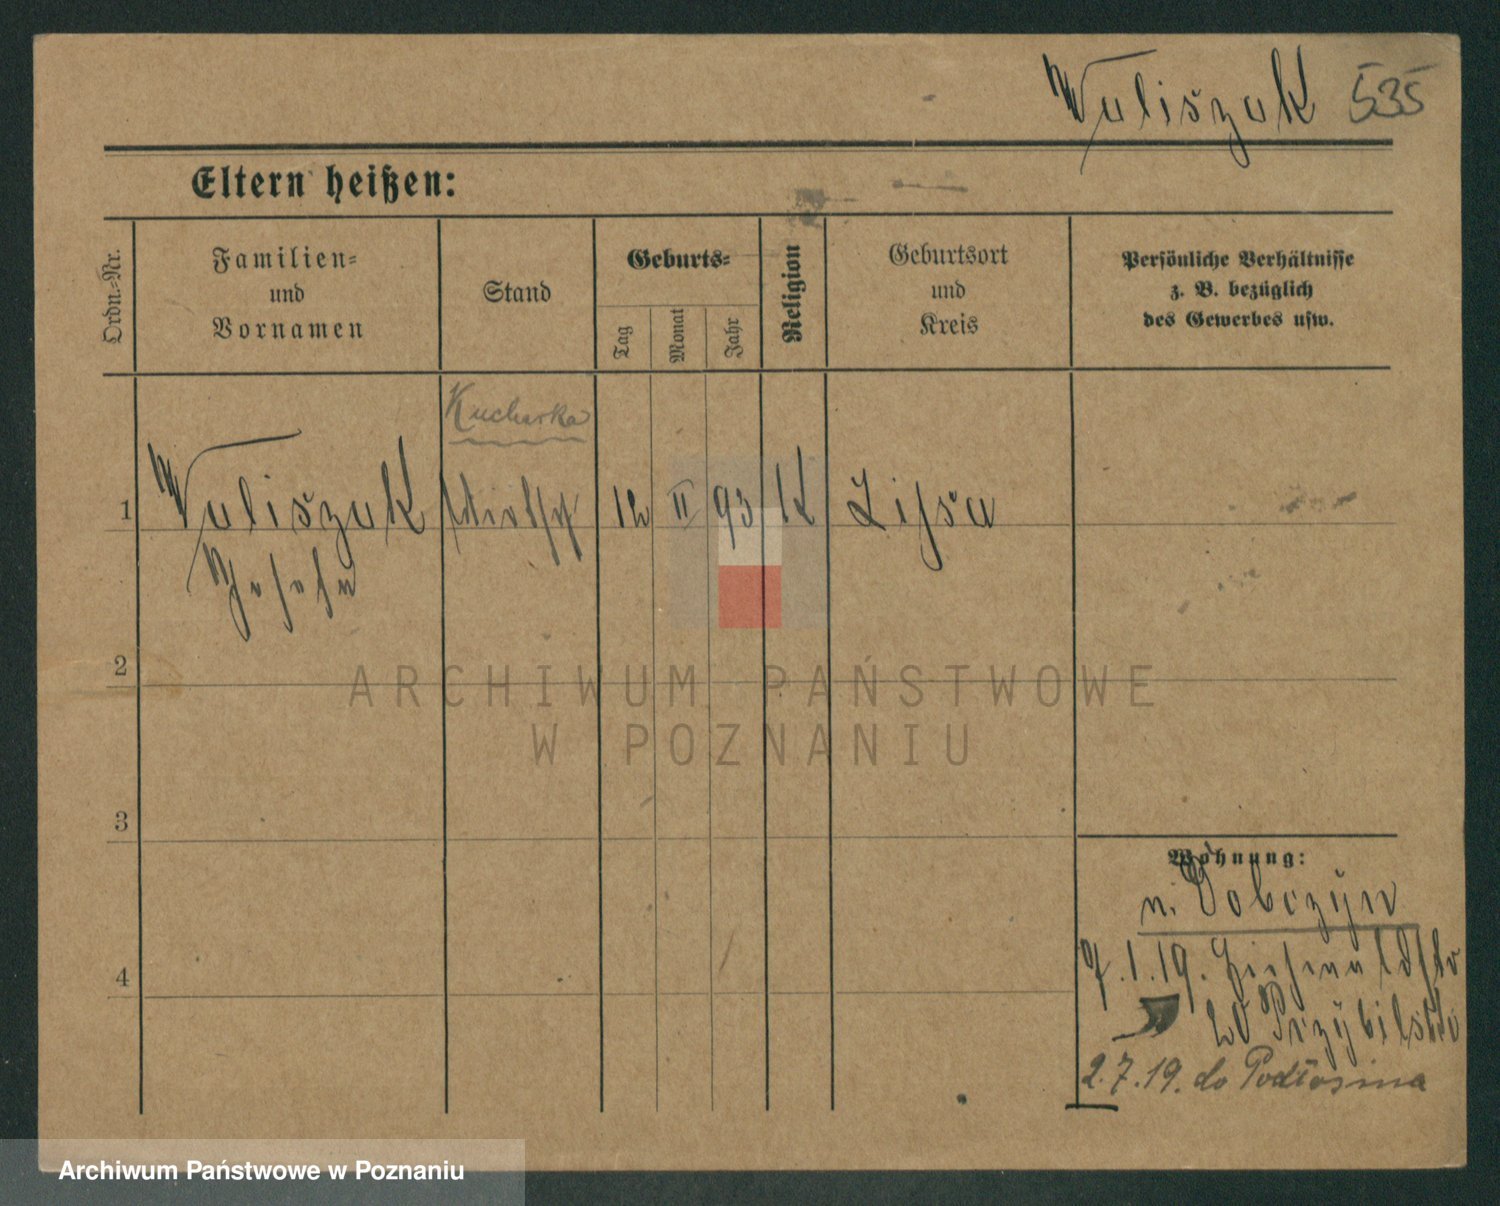 Waliszak 535
Eltern heißen:
Ordn.-Nr.
Familien-
und
Vornamen
Stand
Geburts-
Tag
Monat
Jahr
Religion
Geburtsort
und
Kreis
Persönliche Verhältnisse
z. B. bezüglich
des Gewerbes usw.
Kucharka
1 Waliszak 12 II 93 K
Josefa
2
3
4
ARCHIWUM PAŃSTWOWE
W POZNANIU
Wohnung:
n. Dobczyn
7.1.19.
2.7.19. do Podłosina
Archiwum Państwowe w Poznaniu